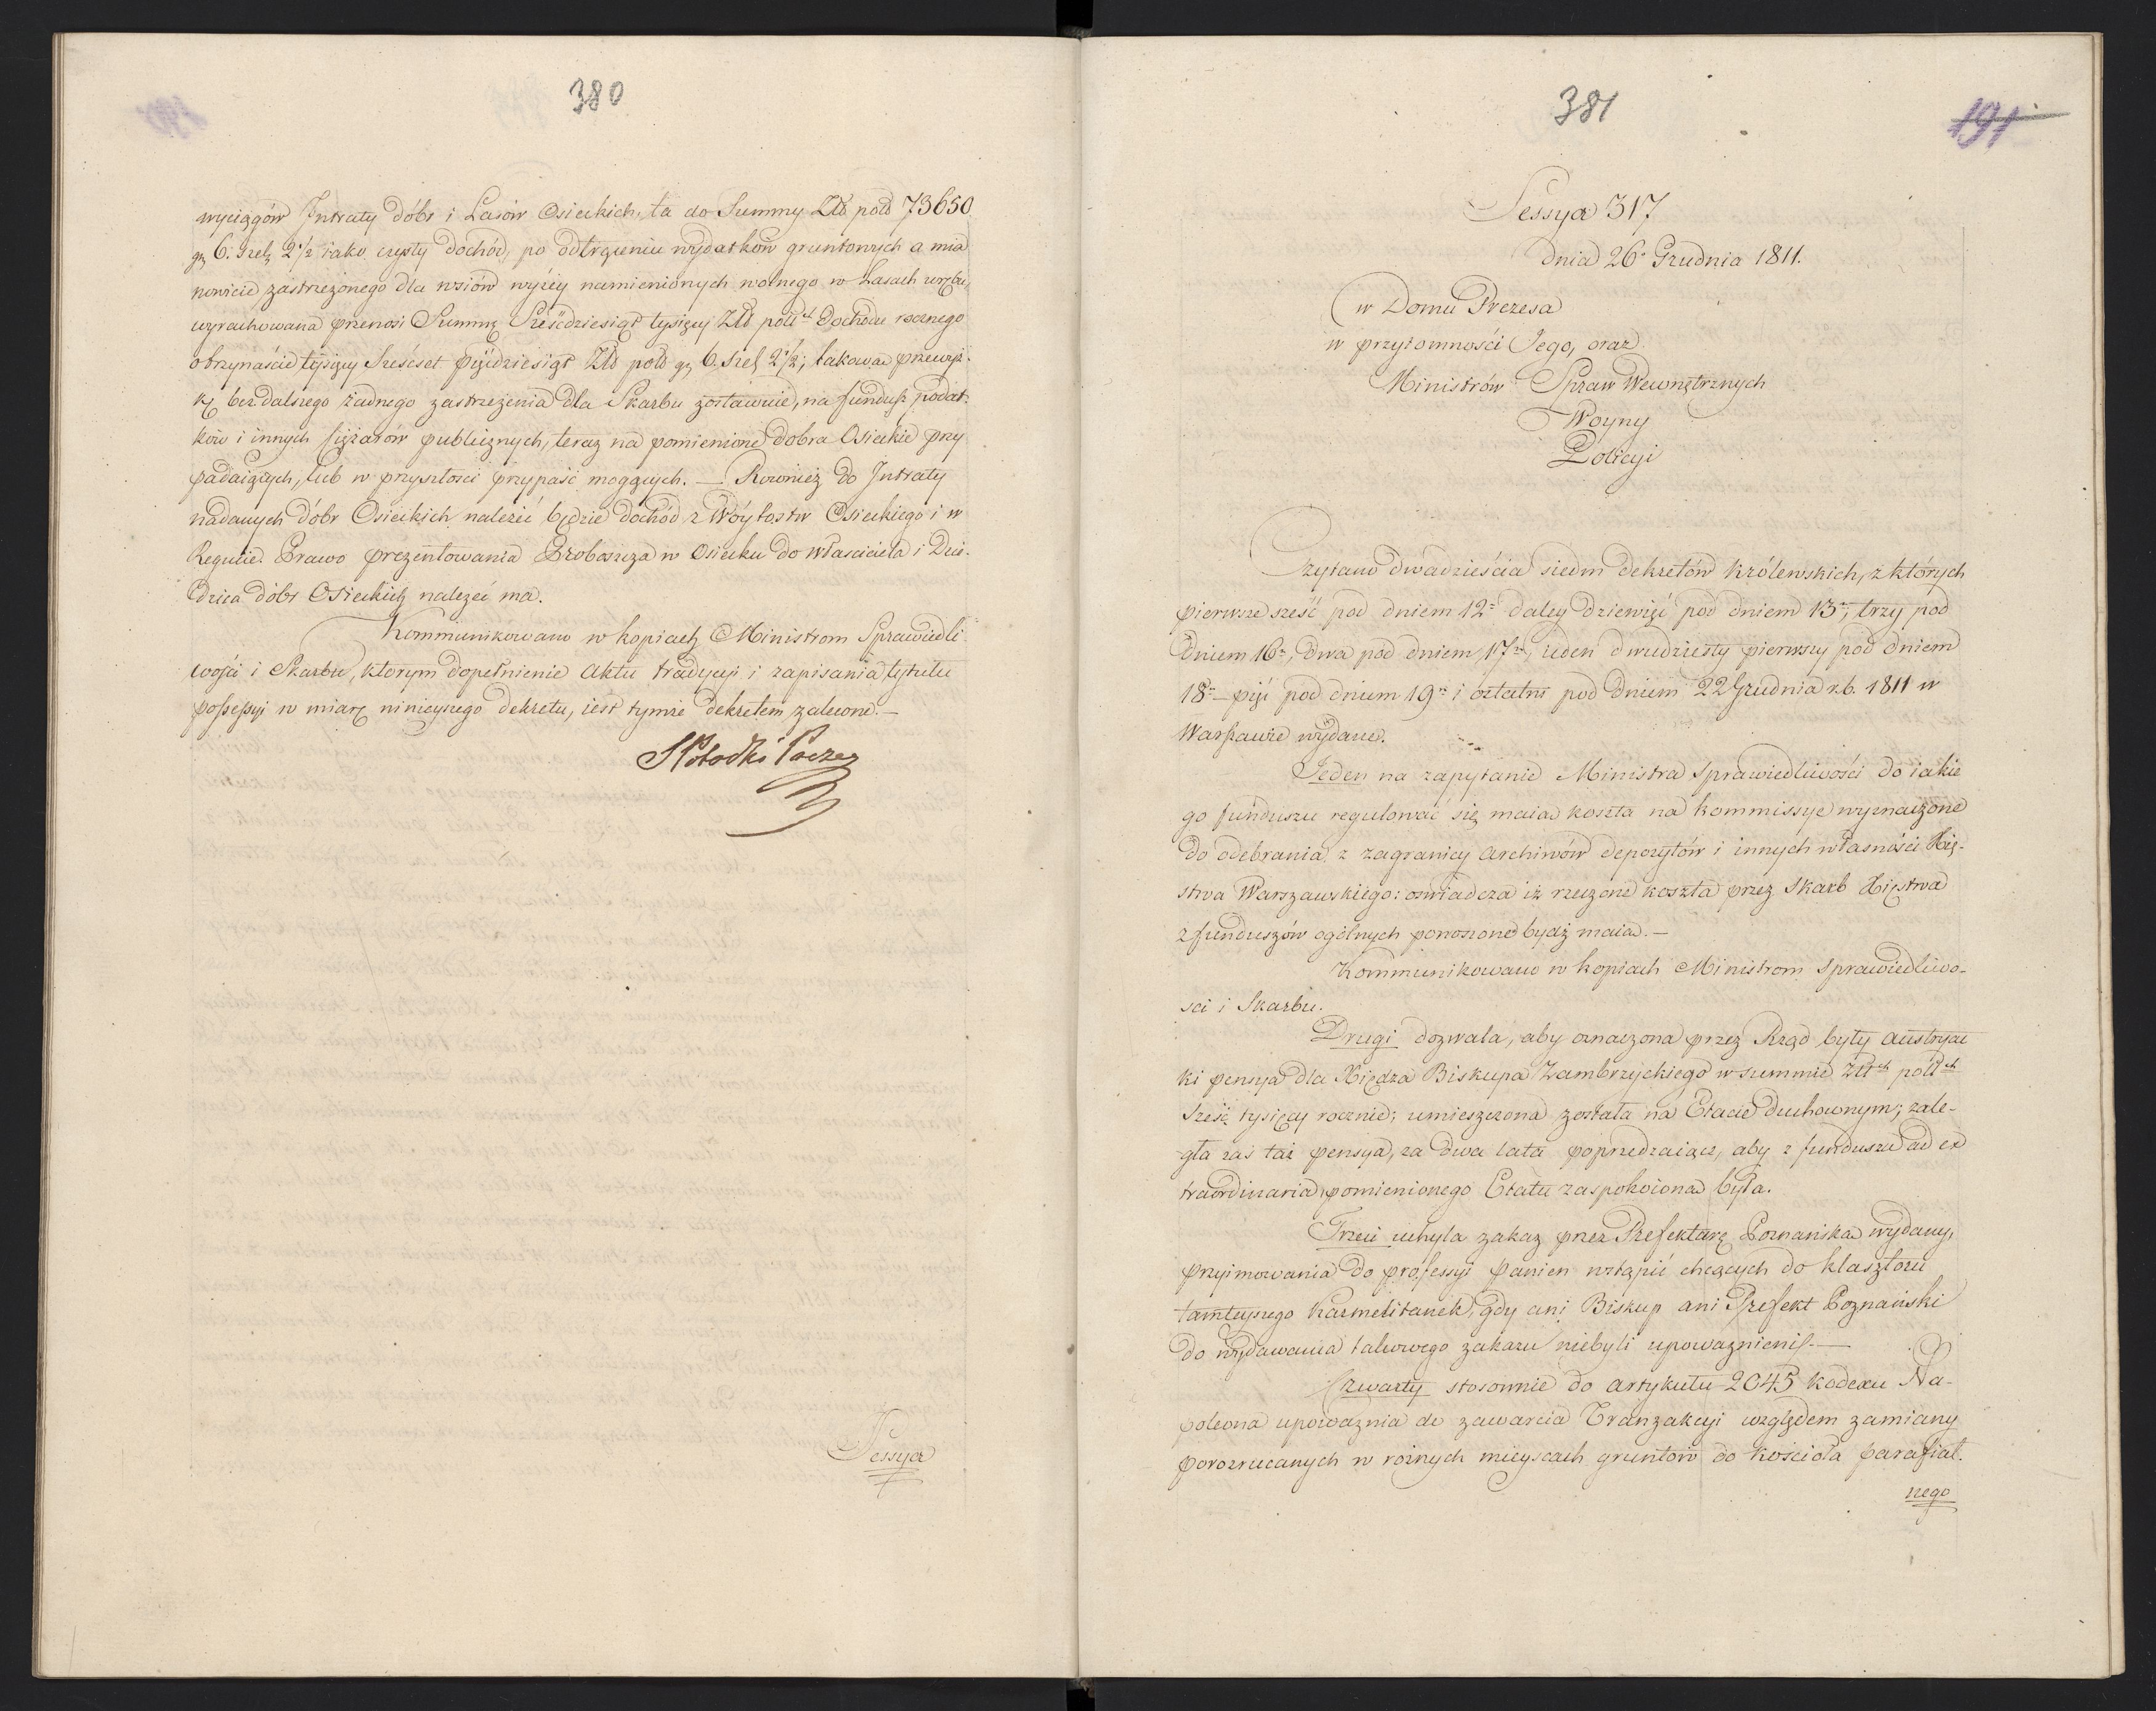 380
wyciągów Intraty dóbr i Lasów Osieckich, ta do Summy Złł poł 73650
gr 6. szel. 2 1/2 iako czysty dochód, po odtrąceniu wydatków gruntowych a mia
nowicie zastrzeżonego dla wsiów wyżey namienionych wolnego w Lasach wrębu,
wyrachowana przenosi Summę Sześćdziesiąt tysięcy Złł poll ch dochodu rocznego
o trzynaście tysięcy Sześcset pięćdziesiąt Złł poll gr 6. szel 2 1/2; takowa przewyż-
kę bez dalszego żadnego zastrzeżenia dla Skarbu zostawuie, na fundusz podat-
ków i innych ciężarów publicznych, teraz na pomienione dobra Osieckie przy
padaiących, lub w przyszłości przypaść mogących. — Rownież do Intraty
nadanych dóbr Osieckich należeć będzie dochód z Wóytostw Osieckiego i w
Regucie. Prawo prezentowania Proboszcza w Osiecku do właściciela i Dzie-
dzica dóbr Osieckich należeć ma.
Kommunikowano w kopiach Ministrom Sprawiedli-
wości i Skarbu, ktorym dopełnienie Aktu tradycyi i zapisania tytułu
possessyi w miarę ninieyszego dekretu, iest tymże dekretem zalecone. —
S Potocki Prezes
Sessya
381
191
Sessya 317
dnia 26º Grudnia 1811.
w Domu Prezesa
w przytomności Jego, oraz
Ministrów Spraw Wewnętrznych
Woyny
Policyi
Czytano dwadzieścia siedm dekretów królewskich, z których
pierwsze sześć pod dniem 12º daley dziewięć pod dniem 13º, trzy pod
dniem 16º, dwa pod dniem 17º, ieden dwudziesty pierwszy pod dniem
18º — pięć pod dniem 19º i ostatni pod dniem 22 Grudnia r. b. 1811 w
Warszawie wydane.
Jeden na zapytanie Ministra Sprawiedliwości do iakie
go funduszu regulować się maią koszta na Kommissye wyznaczone
do odebrania z zagranicy archiwów depozytów i innych własności Xię-
stwa Warszawskiego: oswiadcza iż rzeczone koszta przez Skarb Xięstwa
z funduszów ogólnych ponoszone bydź maią. —
Kommunikowano w kopiach Ministrom Sprawiedliwo-
sci i Skarbu.
Drugi dozwala, aby oznaczona przez Rząd były austryac
ki pensya dla Xiędza Biskupa Zambrzyckiego w summie Złł ch poll ch
Sześć tysięcy rocznie; umieszczona została na Etacie duchownym; zale-
gła zaś taż pensya, za dwa lata poprzedzaiące, aby z funduszu ad ex
traordinaria pomienionego Etatu zaspokoiona była.
Trzeci uchyla zakaz przez Prefekturę Poznańską wydany,
przyimowania do professyi panien wstąpić chcących do klasztoru
tamteyszego Karmelitanek, gdy ani Biskup ani Prefekt Poznański
do wydawania takowego zakazu niebyli upoważnieni. —
Czwarty stosownie do artykułu 2045 kodexu Na-
poleona upoważnia do zawarcia Tranzakcyi względem zamiany
porozrucanych w różnych mieyscach gruntów do kościoła parafial-
nego